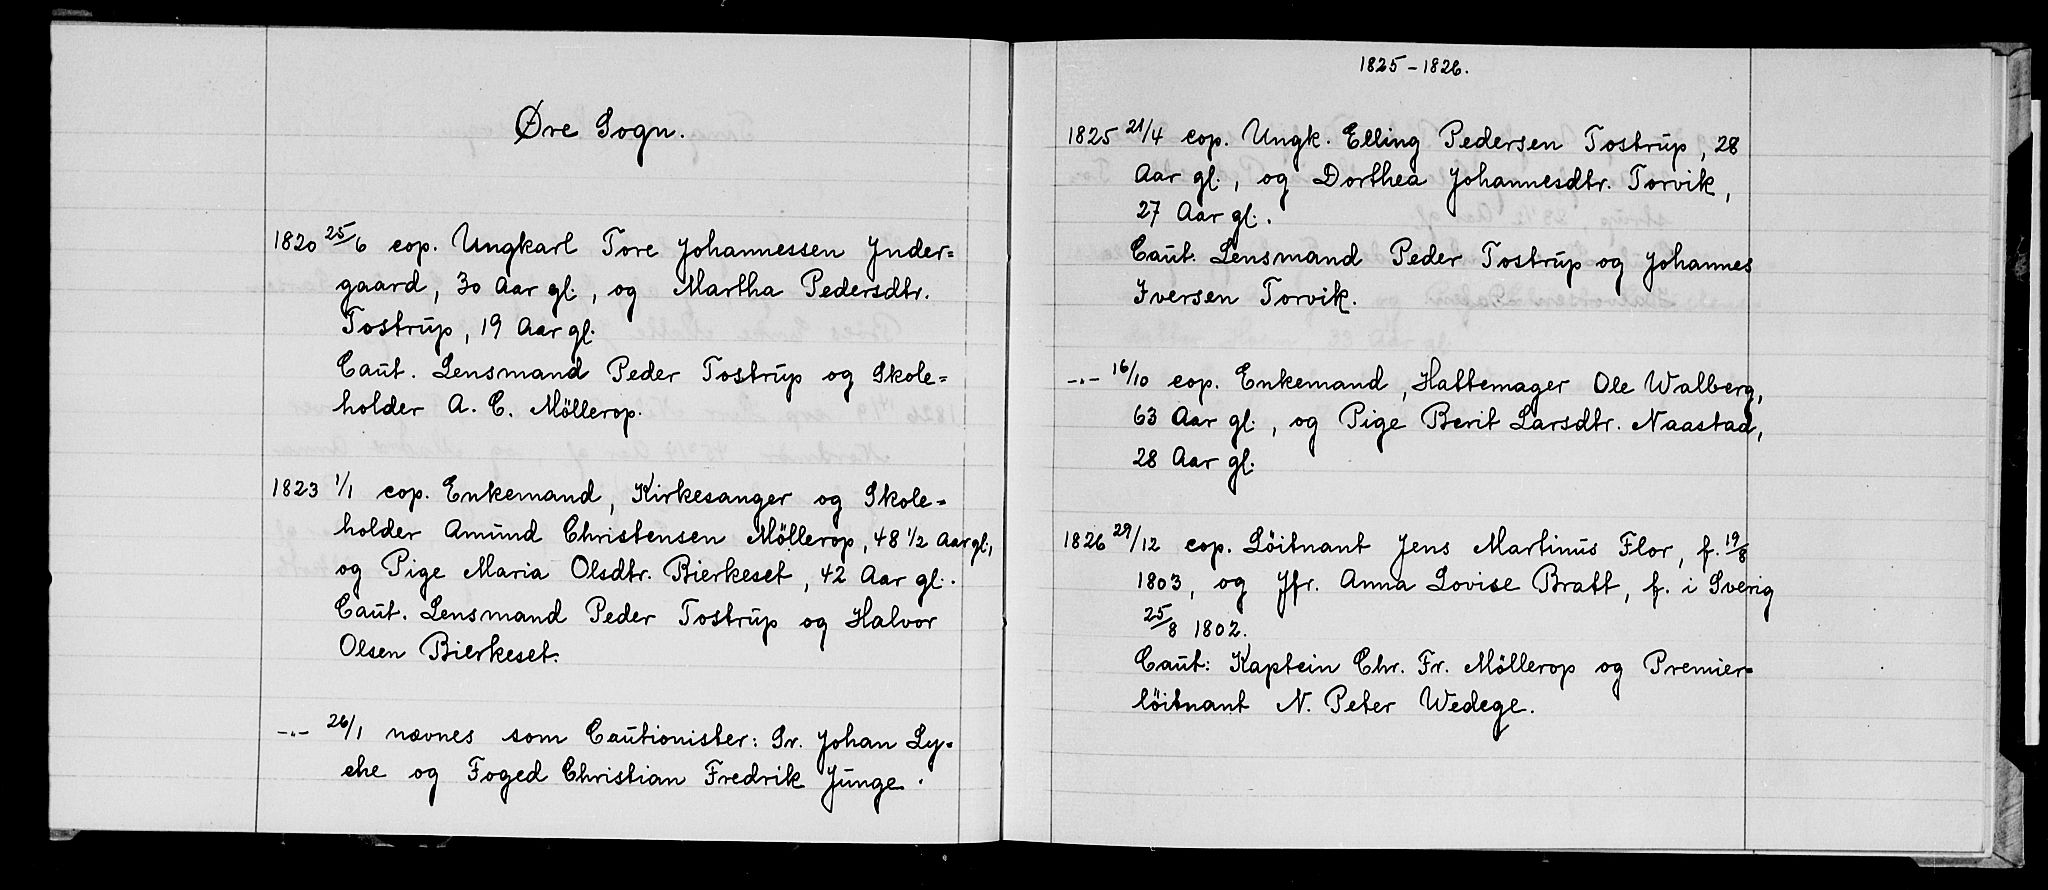 Øre Sogn.
1820 25/6 cop. Ungkarl Tore Johannessen Ynder=
gaard, 30 Aar gl., og Martha Pedersdtr.
Tostrup, 19 Aar gl.
Caut. Lensmand Peder Tostrup og Skole=
holder A. C. Möllerop.
1823 1/1 cop. Enkemand, Kirkesanger og Skole=
holder Amund Christensen Möllerop, 48 1/2 Aar gl,
og Pige Maria Olsdtr. Bierkeset, 42 Aar gl.
Caut. Lensmand Peder Tostrup og Halvor
Olsen Bierkeset.
-"- 26/1 nævnes som Cautionister: Sr. Johan Ly=
che og Foged Christian Fredrik Junge.
1825-1826.
1825 21/4 cop. Ungk. Elling Pedersen Tostrup, 28
Aar gl., og Dorthea Johannesdtr. Torvik,
27 Aar gl.
Caut. Lensmand Peder Tostrup og Johannes
Iversen Torvik.
-"- 16/10 cop. Enkemand, Hattemager Ole Walberg,
63 Aar gl., og Pige Berit Larsdtr. Naastad,
28 Aar gl.
1826 29/12 cop. Löitnant Jens Martinus Flor, f. 19/8
1803, og Jfr. Anna Lovise Bratt, f. i Sverig
25/8 1802.
Caut: Kaptein Chr. Fr. Möllerop og Premier=
löitnant N. Peter Wedege.